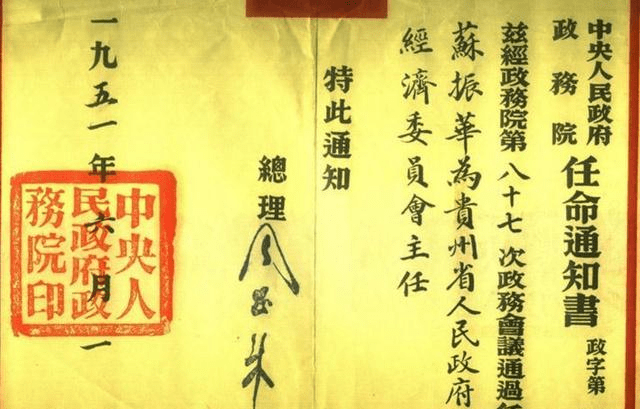 中央人民政府
政務院
任命通知書
政字第
茲經政務院第八十七次政務會議通過任
蘇振華為貴州省人民政府
經濟委員會主任
特此通知
總理
周恩來
一九五一年六月一
中央人民政府政務院印